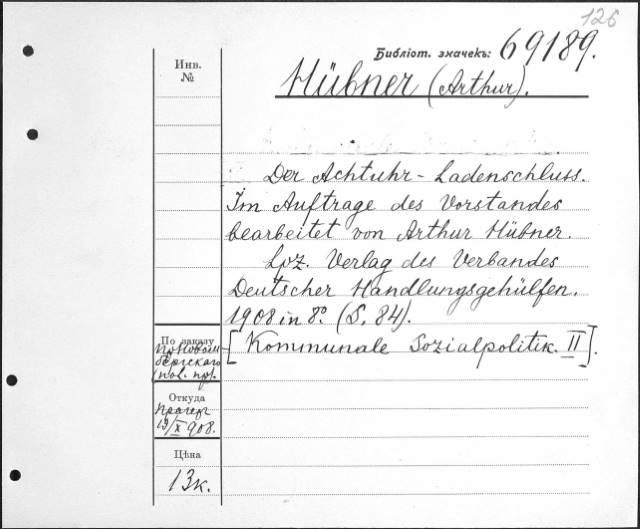 126
Библіот. значекъ: 69189.
Инв.
№
Hübner (Arthur).
Der Achtuhr-Ladenschluss.
Im Auftrage des Vorstandes
bearbeitet von Arthur Hübner.
Lpz. Verlag des Verbandes
Deutscher Handlungsgehülfen.
1908 in 8º. (S. 84).
[Kommunale Sozialpolitik. II].
По заказу
Откуда
Прагер
13/X 908.
Цѣна
13к.